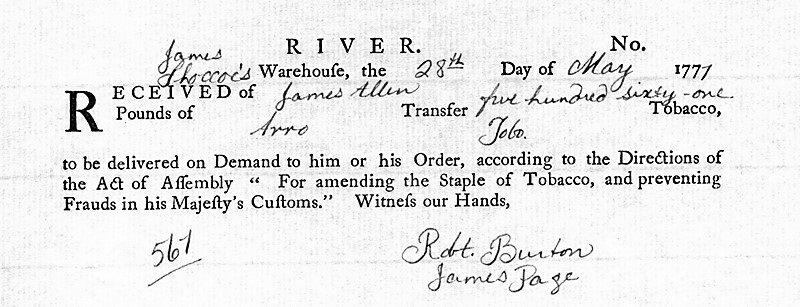 James RIVER. No.
Shoccoe's Warehouſe, the 28th Day of May 1771
RECEIVED of James Allen Transfer five hundred sixty-one
Pounds of Arro Tobo. Tobacco,
to be delivered on Demand to him or his Order, according to the Directions of
the Act of Aſſembly “ For amending the Staple of Tobacco, and preventing
Frauds in his Majeſty's Cuſtoms.” Witneſs our Hands,
561 Robt. Burton
James Page